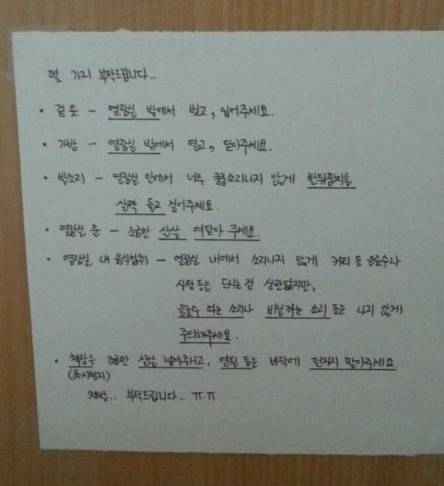 몇 가지 부탁드립니다..
• 겉옷 - 열람실 밖에서 벗고, 입어주세요.
• 가방 - 열람실 밖에서 열고, 닫아주세요.
• 발소리 - 열람실 안에서 너무 쿵쿵소리나지 않게 발뒤꿈치를
살짝 들고 걸어주세요.
• 열람실 문 - 조금만 살살 여닫아 주세요.
• 열람실 내 음식섭취 - 열람실 내에서 소리나지 않게 커피 등 음료수나
사탕 등은 드시는건 상관없지만,
음료수 하는 소리나 비닐까는 소리 등은 나지 않게
주의해주세요.
• 책장은 조금만 살살 넘겨주시고, 연필 등은 바닥에 던지지 말아주세요
(&시험지)
제발.. 부탁드립니다.. ㅠㅠ